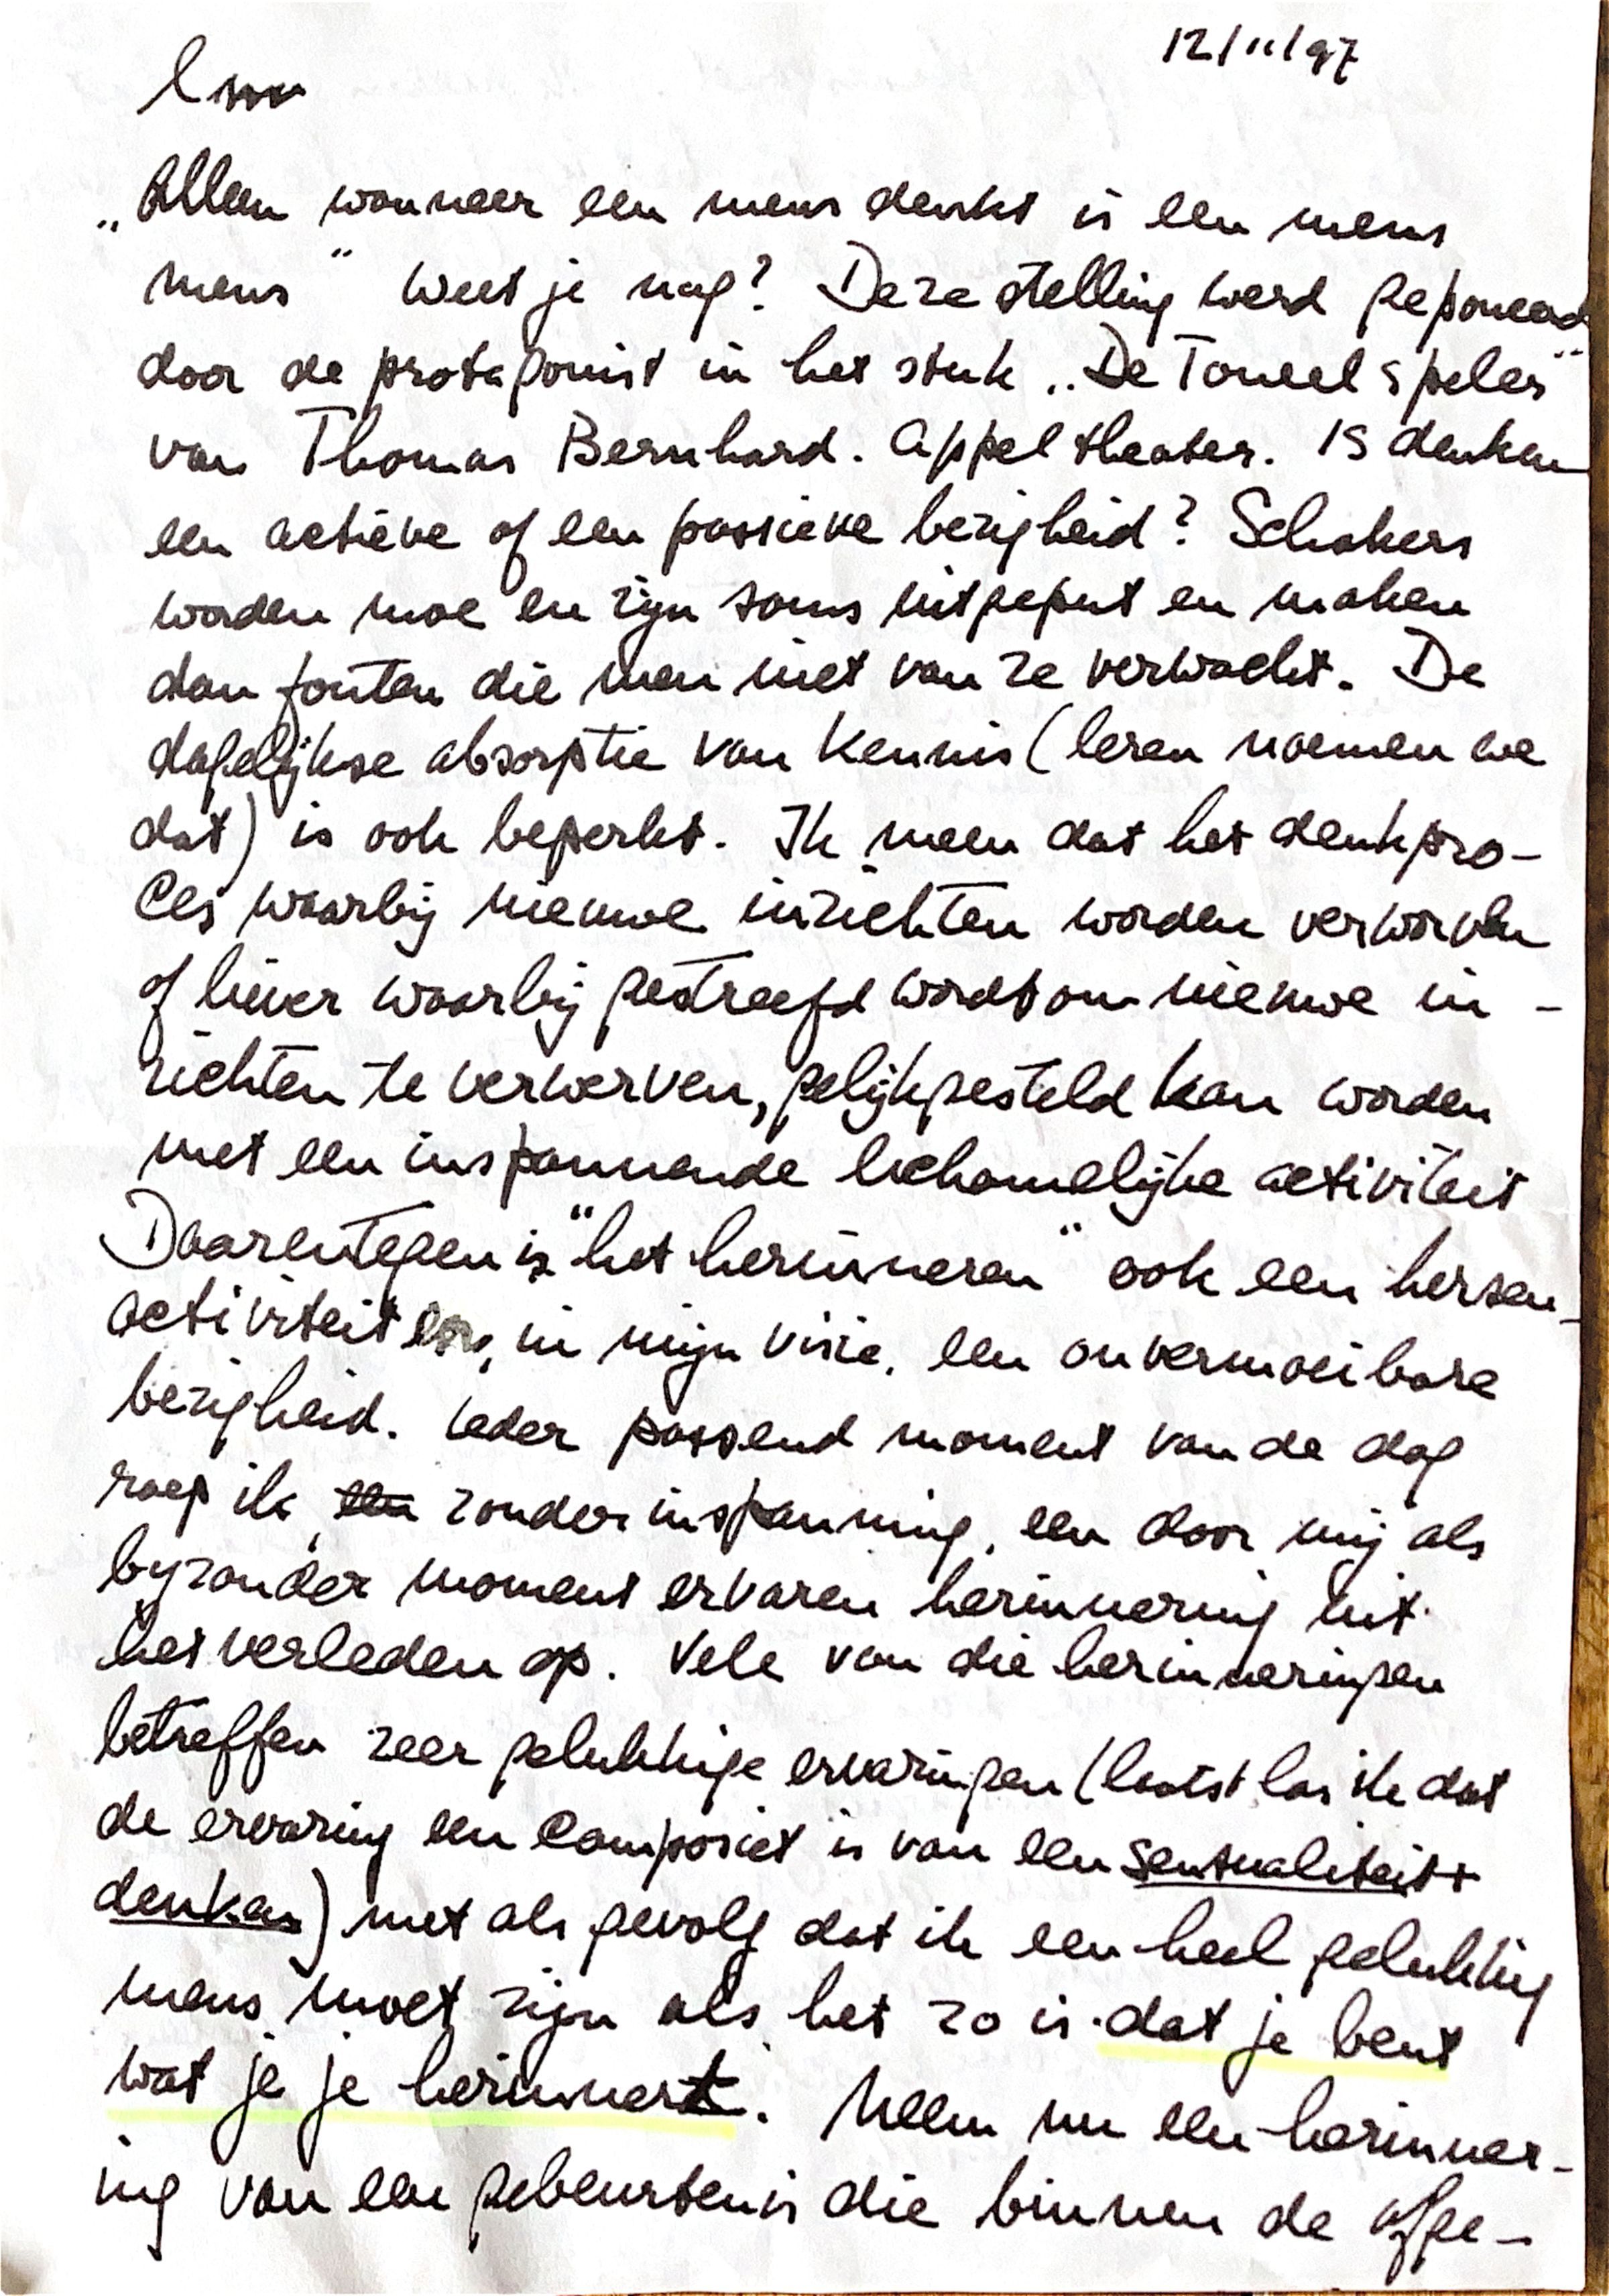 12/11/97
„Alleen wanneer een mens denkt is een mens
mens" weet je nog? Deze stelling werd geponeerd
door de protagonist in het stuk „De Toneelspeler"
van Thomas Bernhard. Appeltheater. Is denken
een actieve of een passieve bezigheid? Schakers
worden moe en zijn soms uitgeput en maken
dan fouten die men niet van ze verwacht. De
dagelijkse absorptie van kennis (leren noemen we
dat) is ook beperkt. Ik meen dat het denkpro-
ces waarbij nieuwe inzichten worden verworven
of liever waarbij gestreefd wordt om nieuwe in-
zichten te verwerven, gelijkgesteld kan worden
met een inspannende lichamelijke activiteit
Daarentegen is "het herinneren" ook een hersen-
activiteit en, in mijn visie, een onvermoeibare
bezigheid. Ieder passend moment van de dag
roep ik, zonder inspanning, een door mij als
byzonder moment ervaren herinnering uit
het verleden op. Vele van die herinneringen
betreffen zeer gelukkige ervaringen (laatst las ik dat
de ervaring een composiet is van een sensualiteit +
denken) met als gevolg dat ik een heel gelukkig
mens moet zijn als het zo is dat je bent
wat je je herinnert. Neem nu een herinner-
ing van een gebeurtenis die binnen de afge-